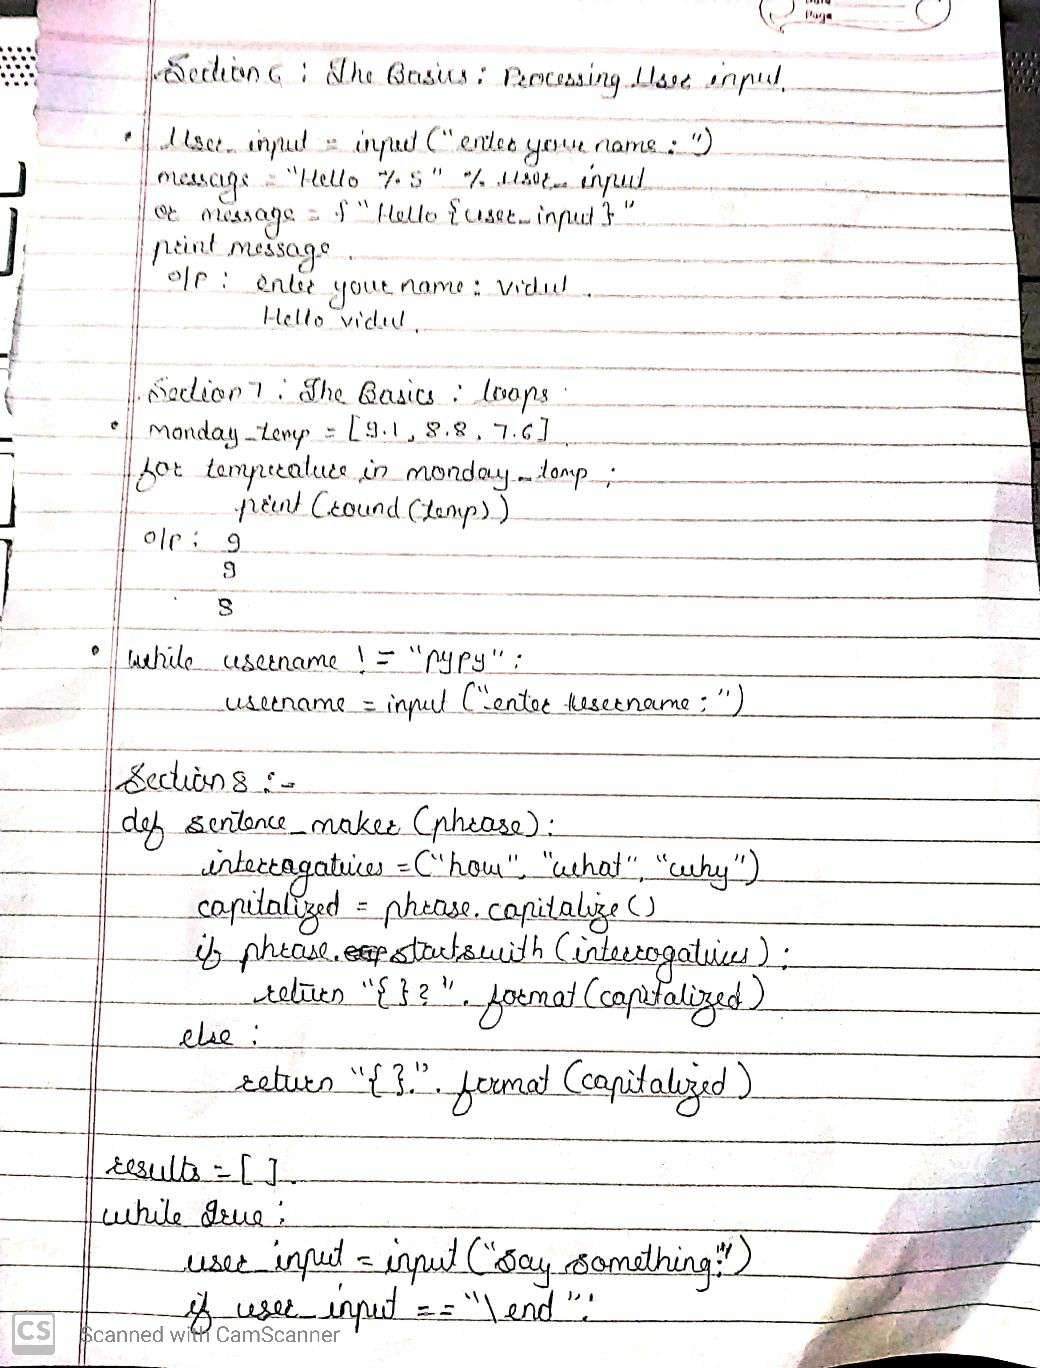 Page
Section 6 : The Basics : Processing User input.
• User_input = input ("enter your name : ")
message = "Hello %s" % user_input
or message = f "Hello {user_input}"
print message.
o/p : enter your name : vidul.
Hello vidul.
Section 7 : The Basics : loops
• monday_temp = [9.1, 8.8, 7.6]
for temperature in monday_temp :
print (round (temp))
o/p : 9
9
8
• while username != "pypy" :
username = input ("enter username : ")
Section 8 :-
def sentence_maker (phrase):
interragatives = ("how", "what", "why")
capitalized = phrase.capitalize()
if phrase.startswith (interrogatives) :
return "{}?". format (capitalized)
else :
return "{}.". format (capitalized)
results = [ ].
while True :
user_input = input ("Say something:")
if user_input == "\end" :
CS Scanned with CamScanner